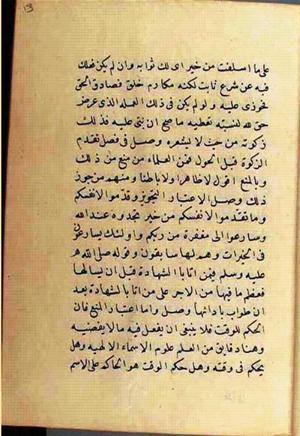 على ما اسلفت من خير اى لك ثوابه وان لم يكن فعلك
فيه عن شرع ثابت لكنه مكارم خلق فصادق الحق
فجوزى عليه ولو لم يكن فى ذلك العمله الذى عرض
حق لله لنسبته تعطيه ما صح ان يثنى عليه فذلك
زكوته من حيث لا يشعر وصل فى فصل تقدم
الزكوة قبل الحول فمن العلماء من منع من ذلك
وبالمنع اقول لا ظاهرا ولا باطنا ومنهم من جوز
ذلك وصل الاعتبار التجويز وقدموا لانفسكم
وما تقدموا لانفسكم من خير تجدوه عند الله
وسارعوا الى مغفرة من ربكم واولئك يسارعون
فى الخيرات وهم لها سابقون وقوله صلى الله
عليه وسلم فيمن اتا بالشهادة قبل ان يسالها
فعظم ما فيها من الاجر على من اتا بالشهادة بعد
ان طولب بادائها وصل واما اعتبار المنع فان
الحكم للوقت فلا ينبغى ان يفعل فيه ما لا يقتضيه
وهنا دقايق من العلم علوم الاسماء الالهية وهل
يحكم فى وقته وهل حكم الوقت هو الحاكم على الاسم